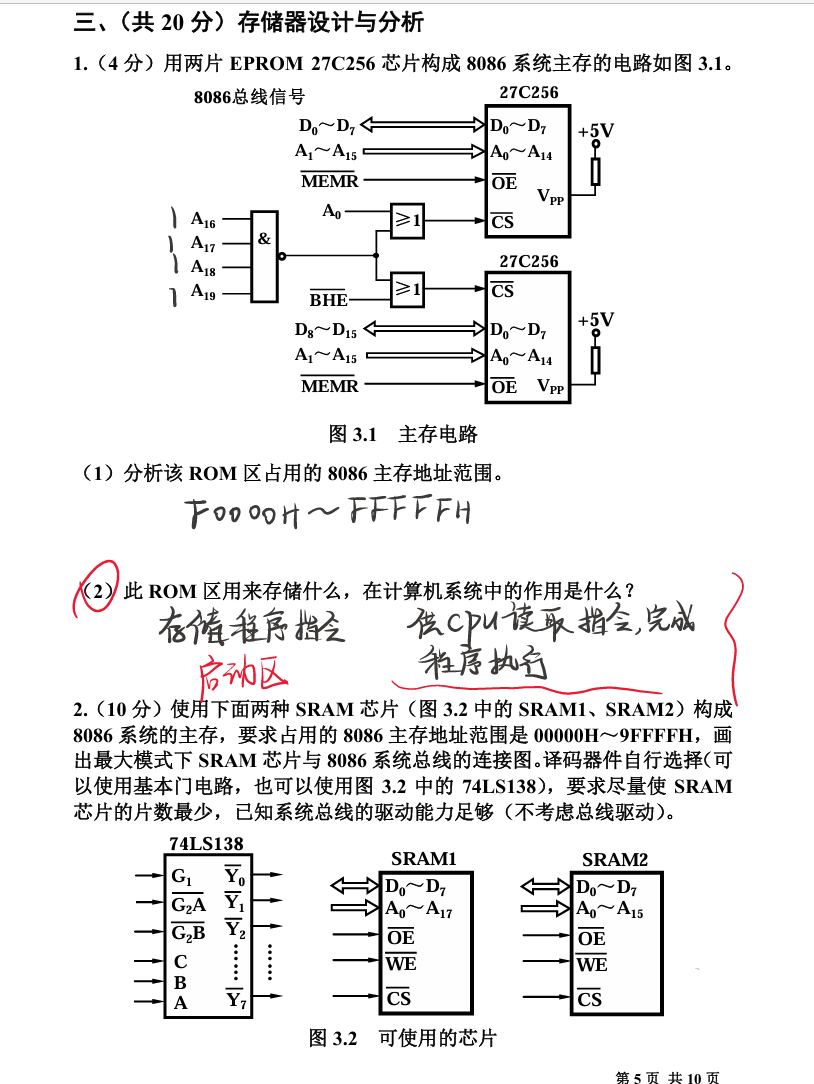 三、（共 20 分）存储器设计与分析
1.（4 分）用两片 EPROM 27C256 芯片构成 8086 系统主存的电路如图 3.1。
8086总线信号
27C256
D0～D7
D0～D7
+5V
A1～A15
A0～A14
MEMR
OE
VPP
1 A16
A0
≥1
CS
1 A17
&
1 A18
27C256
1 A19
BHE
≥1
CS
D8～D15
D0～D7
+5V
A1～A15
A0～A14
MEMR
OE
VPP
图 3.1 主存电路
（1）分析该 ROM 区占用的 8086 主存地址范围。
F0000H～FFFFFH
（2）此 ROM 区用来存储什么，在计算机系统中的作用是什么？
存储程序指令 供CPU读取指令,完成
启动区 程序执行
2.（10 分）使用下面两种 SRAM 芯片（图 3.2 中的 SRAM1、SRAM2）构成
8086 系统的主存，要求占用的 8086 主存地址范围是 00000H～9FFFFH，画
出最大模式下 SRAM 芯片与 8086 系统总线的连接图。译码器件自行选择（可
以使用基本门电路，也可以使用图 3.2 中的 74LS138），要求尽量使 SRAM
芯片的片数最少，已知系统总线的驱动能力足够（不考虑总线驱动）。
74LS138
G1 Y0
G2A Y1
G2B Y2
C
B
A Y7
SRAM1
D0～D7
A0～A17
OE
WE
CS
SRAM2
D0～D7
A0～A15
OE
WE
CS
图 3.2 可使用的芯片
第 5 页 共 10 页